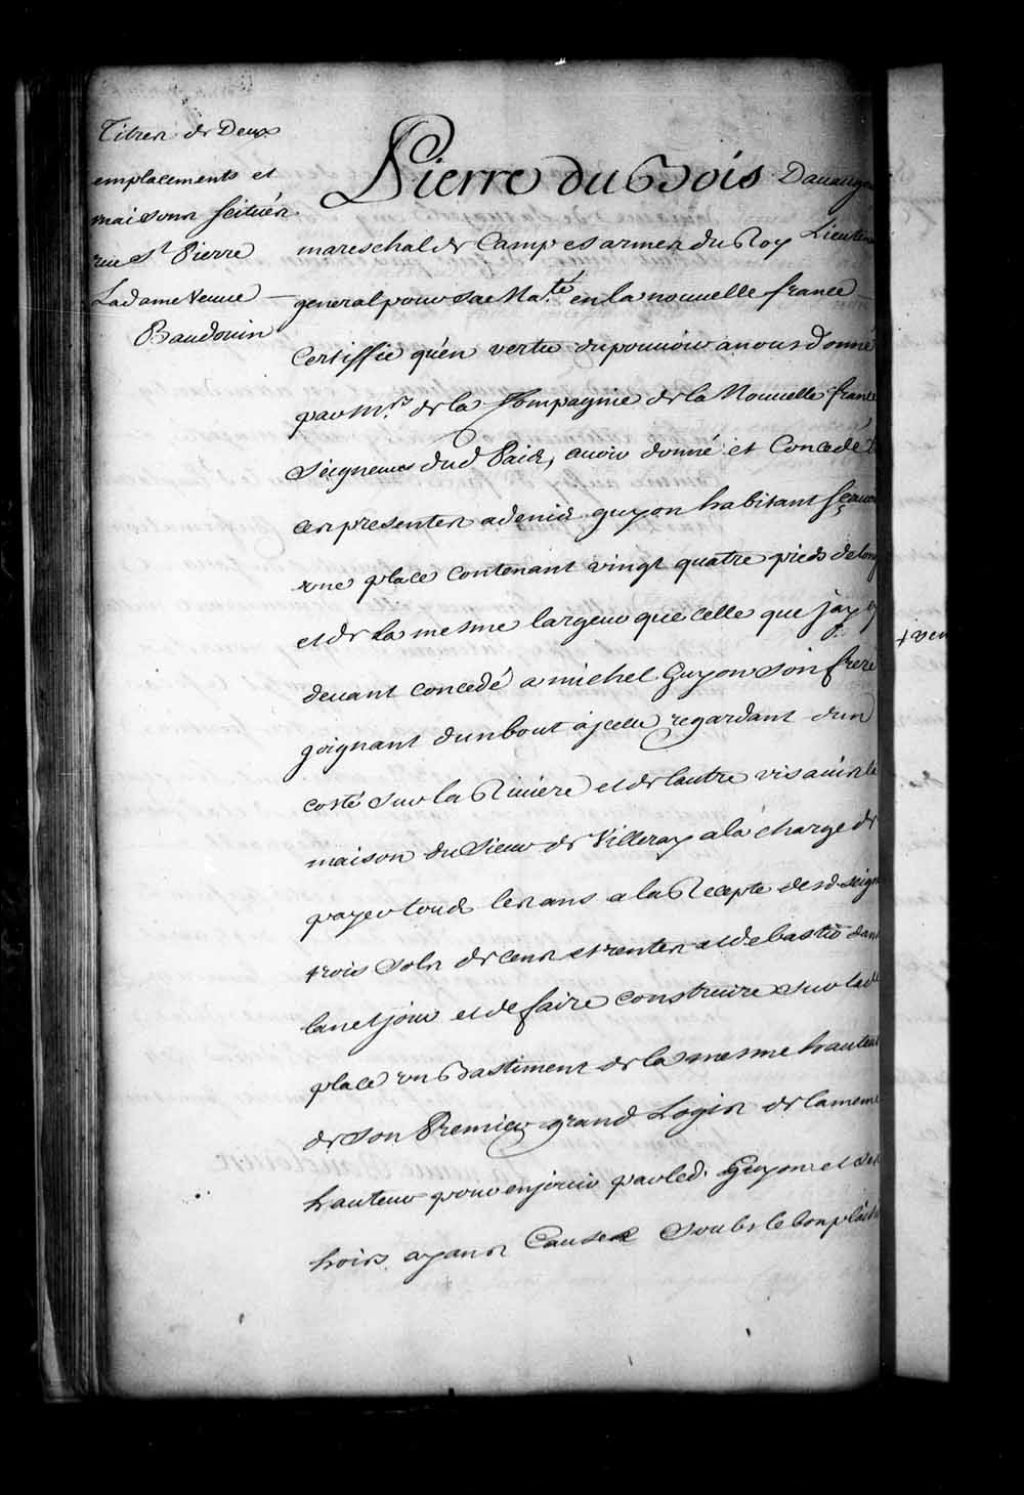 Titres de Deux
emplacements et
maisons scituées
rue St Pierre
La dame veuve
Baudouin
Pierre du Bois Davaugo
mareschal de Camp es armes du Roy Lieuten
general pour sa Ma.té en la nouvelle france
Certiffie qu'en vertu du pouvoir a nous donné
par Mrs de la Compagnie de la Nouvelle france
seigneurs dud Païs, avoir donné et Concedé
ces presentes a denis guyon habitant
une place contenant vingt quatre pieds de long
et de la mesme largeur que celle que jay cy
devant concedé a michel Guyon son frere
joignant dun bout à jcelle regardant dun
costé sur la Riviere et de lautre vis avis la
maison du sieur de Villeray a la charge de
payer tous les ans a la Recepte desd seign
trois sols de cens et rentes et de bastir dans
lan et jour et de faire construire sur lad
place un Bastiment de la mesme hauteur
de son Premier grand Logis de la meme
hauteur pour en jouir par led. Guyon et ses
hoirs ayans Cause soubs le bon plaisir
+ ven